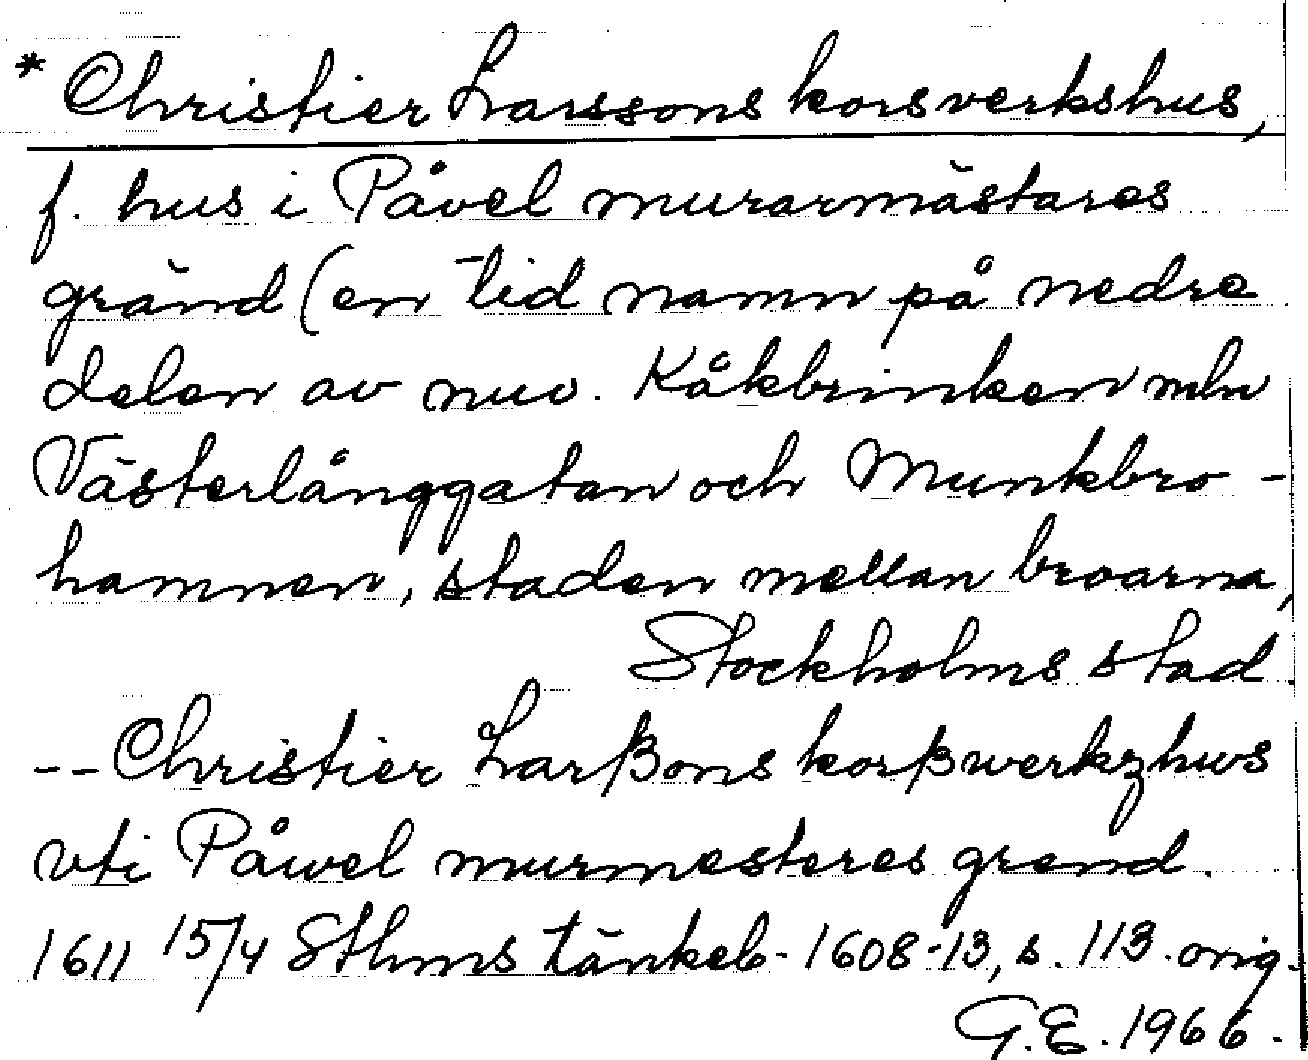 * Christier Larssons korsverkshus,
f. hus i Påvel murarmästares
gränd (en tid namn på nedre
delen av nuv. Kåkbrinken mln
Västerlånggatan och Munkbro-
hamnen, staden mellan broarna,
Stockholms stad.
-- Christier Larßons korßwerkzhws
vti Påwel murmesteres grend.
1611 15/4 Sthms tänkeb. 1608-13, s. 113. orig.
G.E. 1966.